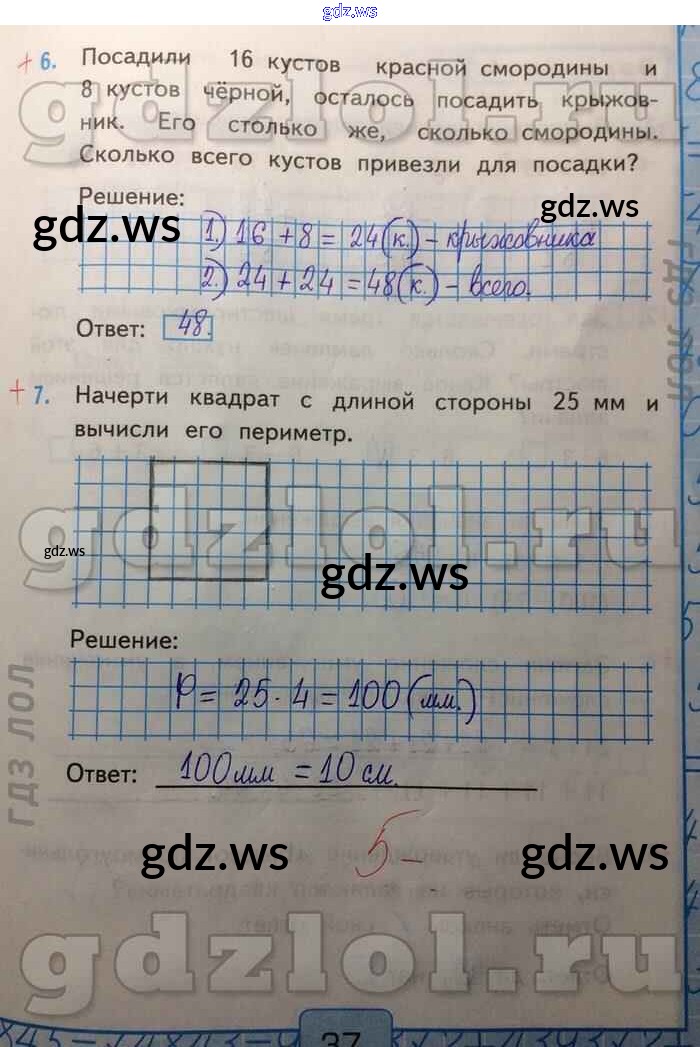 gdz.ws
+ 6. Посадили 16 кустов красной смородины и
8 кустов чёрной, осталось посадить крыжов-
ник. Его столько же, сколько смородины.
Сколько всего кустов привезли для посадки?
gdzlol.ru
Решение:
gdz.ws
gdz.ws
1.) 16 + 8 = 24 (к.) - крыжовника
2.) 24 + 24 = 48 (к.) - всего.
Ответ: 48.
гдз лол
+ 7. Начерти квадрат с длиной стороны 25 мм и
вычисли его периметр.
gdzlol.ru
gdz.ws
gdz.ws
Решение:
P = 25 · 4 = 100 (мм.)
гдз лол
Ответ: 100 мм = 10 см.
5-
gdz.ws
gdz.ws
gdzlol.ru
37